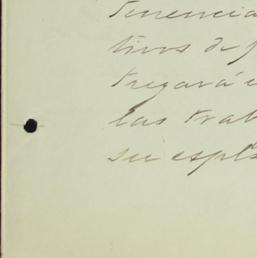 tenencia
tivos de p
tregará e
las trab
su espl